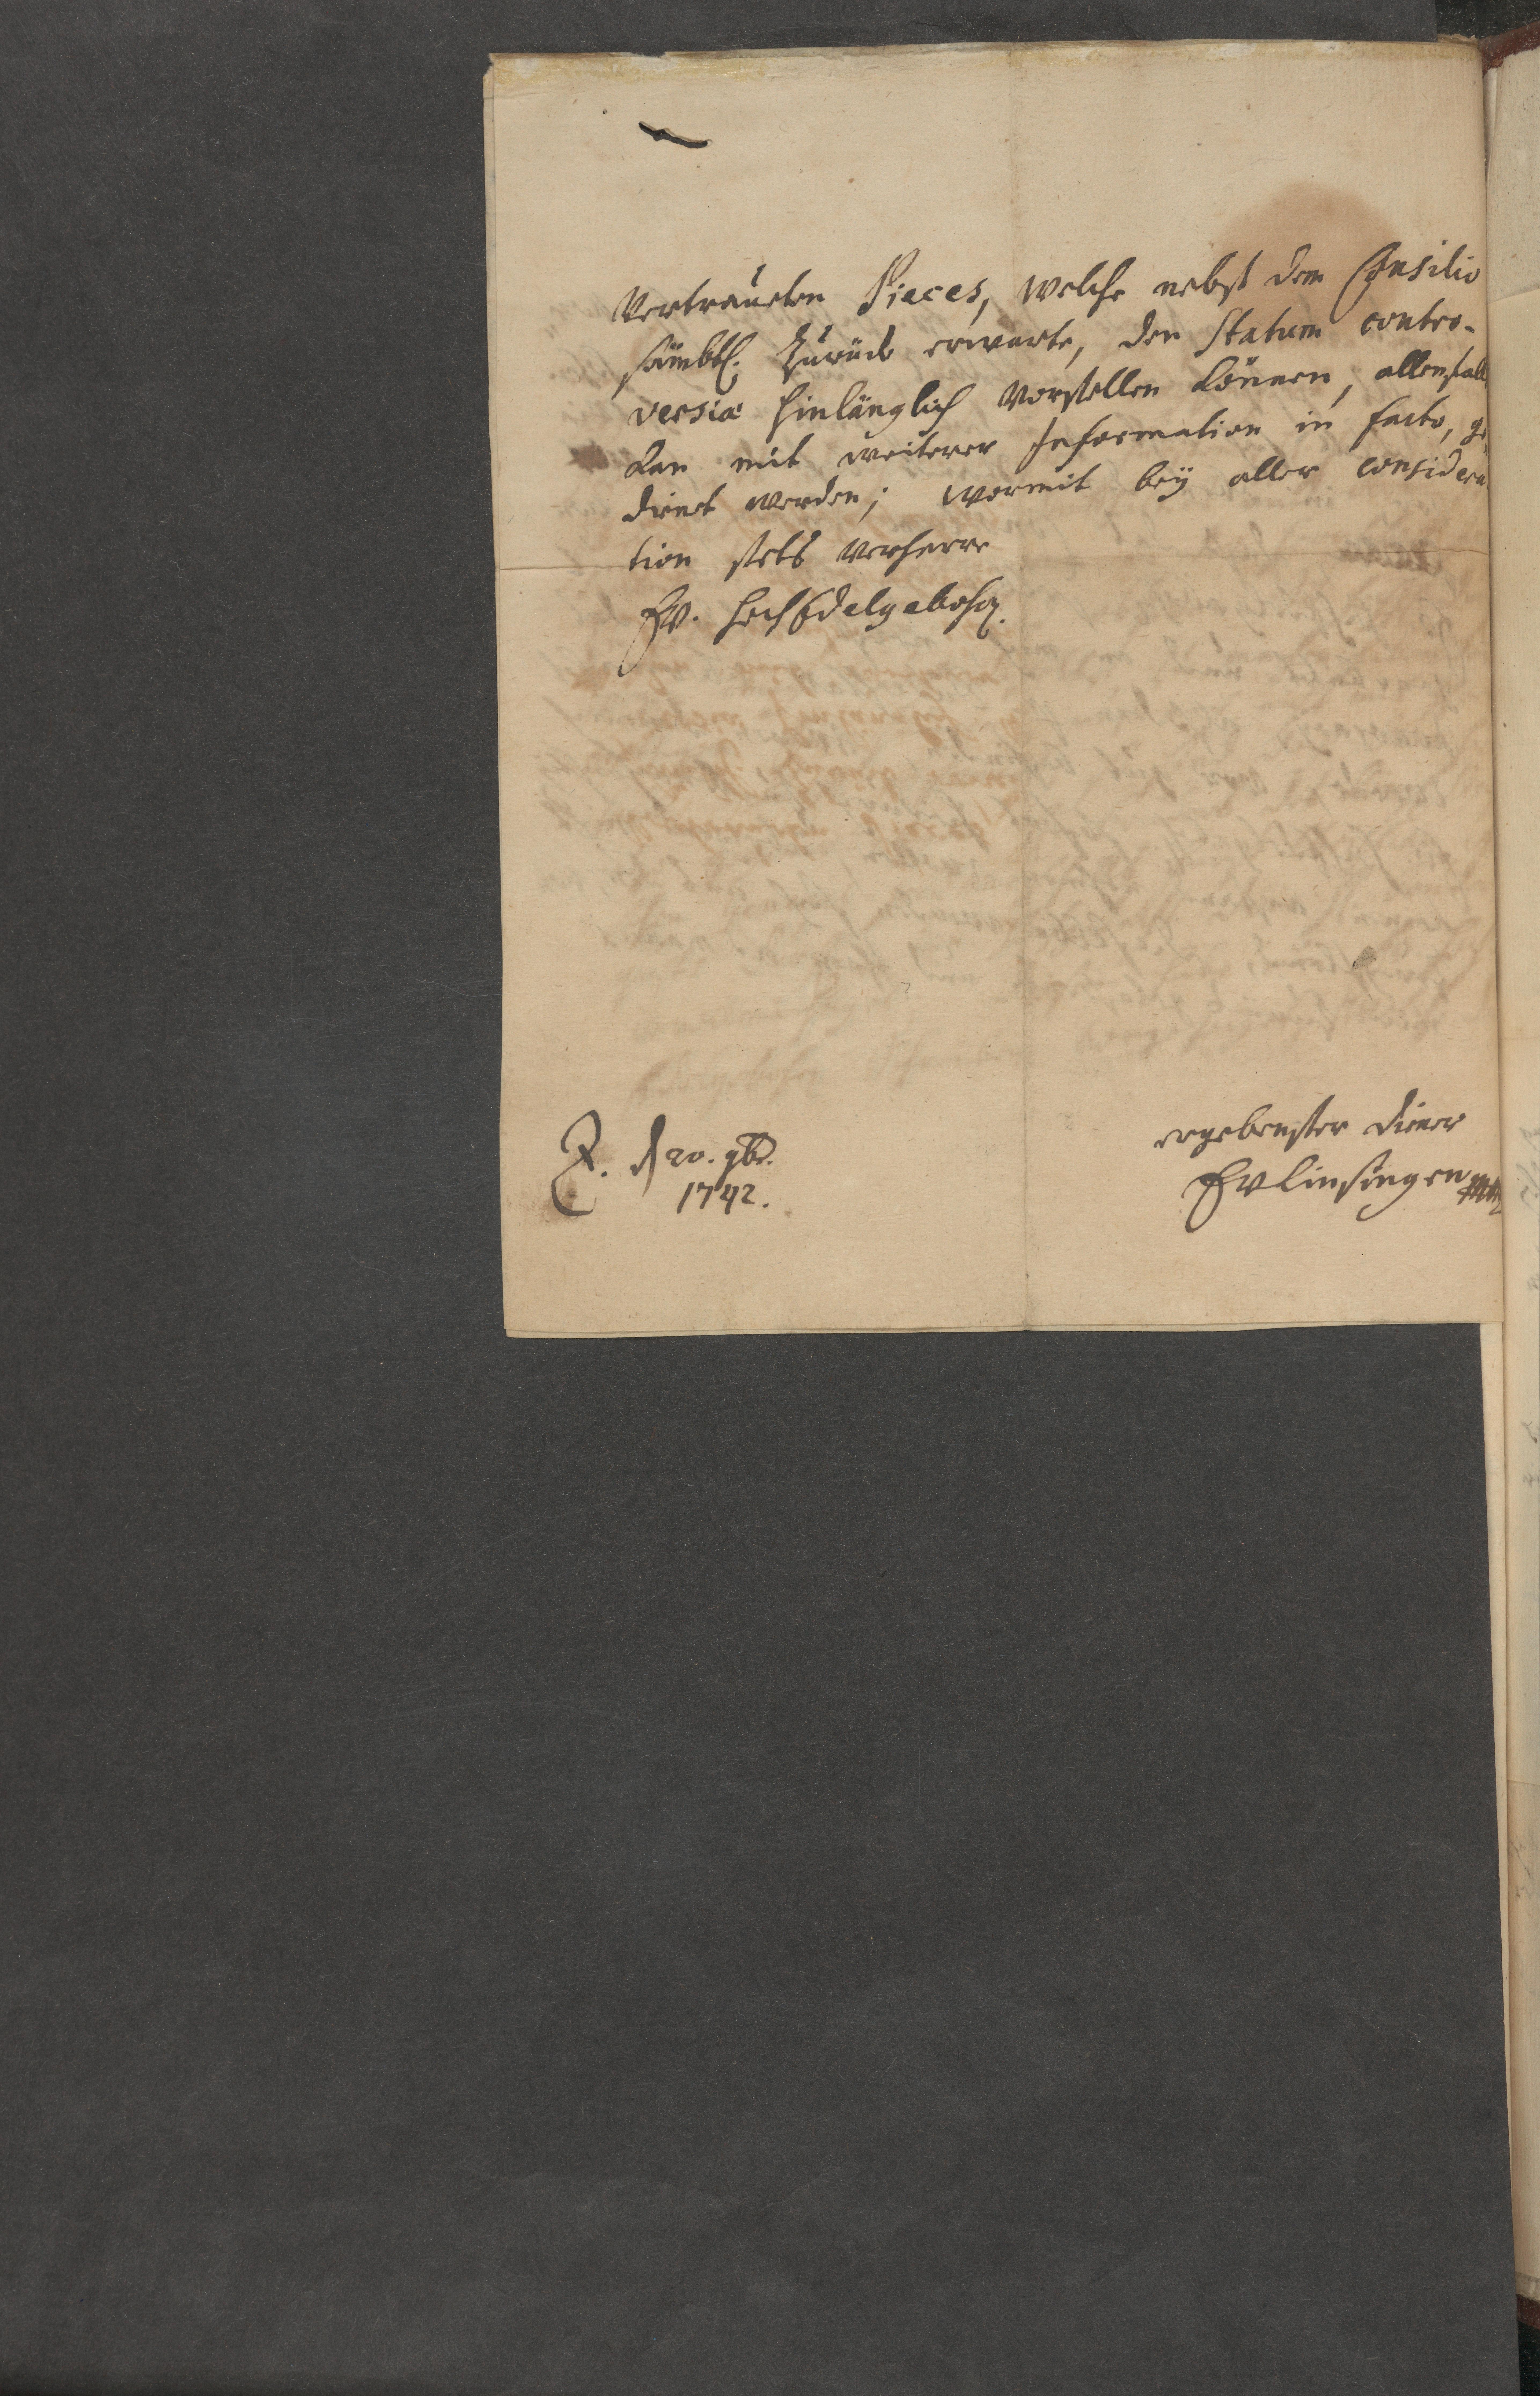 Vertraueten Pieces, welche nebst dem Consilio
sämbtl. Zurück erwarte, den Statum contro-
versiæ hinlänglich Vorstellen können, allenfalls
kan mit weiterer Information in facto, ge
dienet werden; wormit bey aller considera
tion stets verharre
Ew. HochEdelgebohr.
ergebenster Diener
den 20. 9br.
1742.